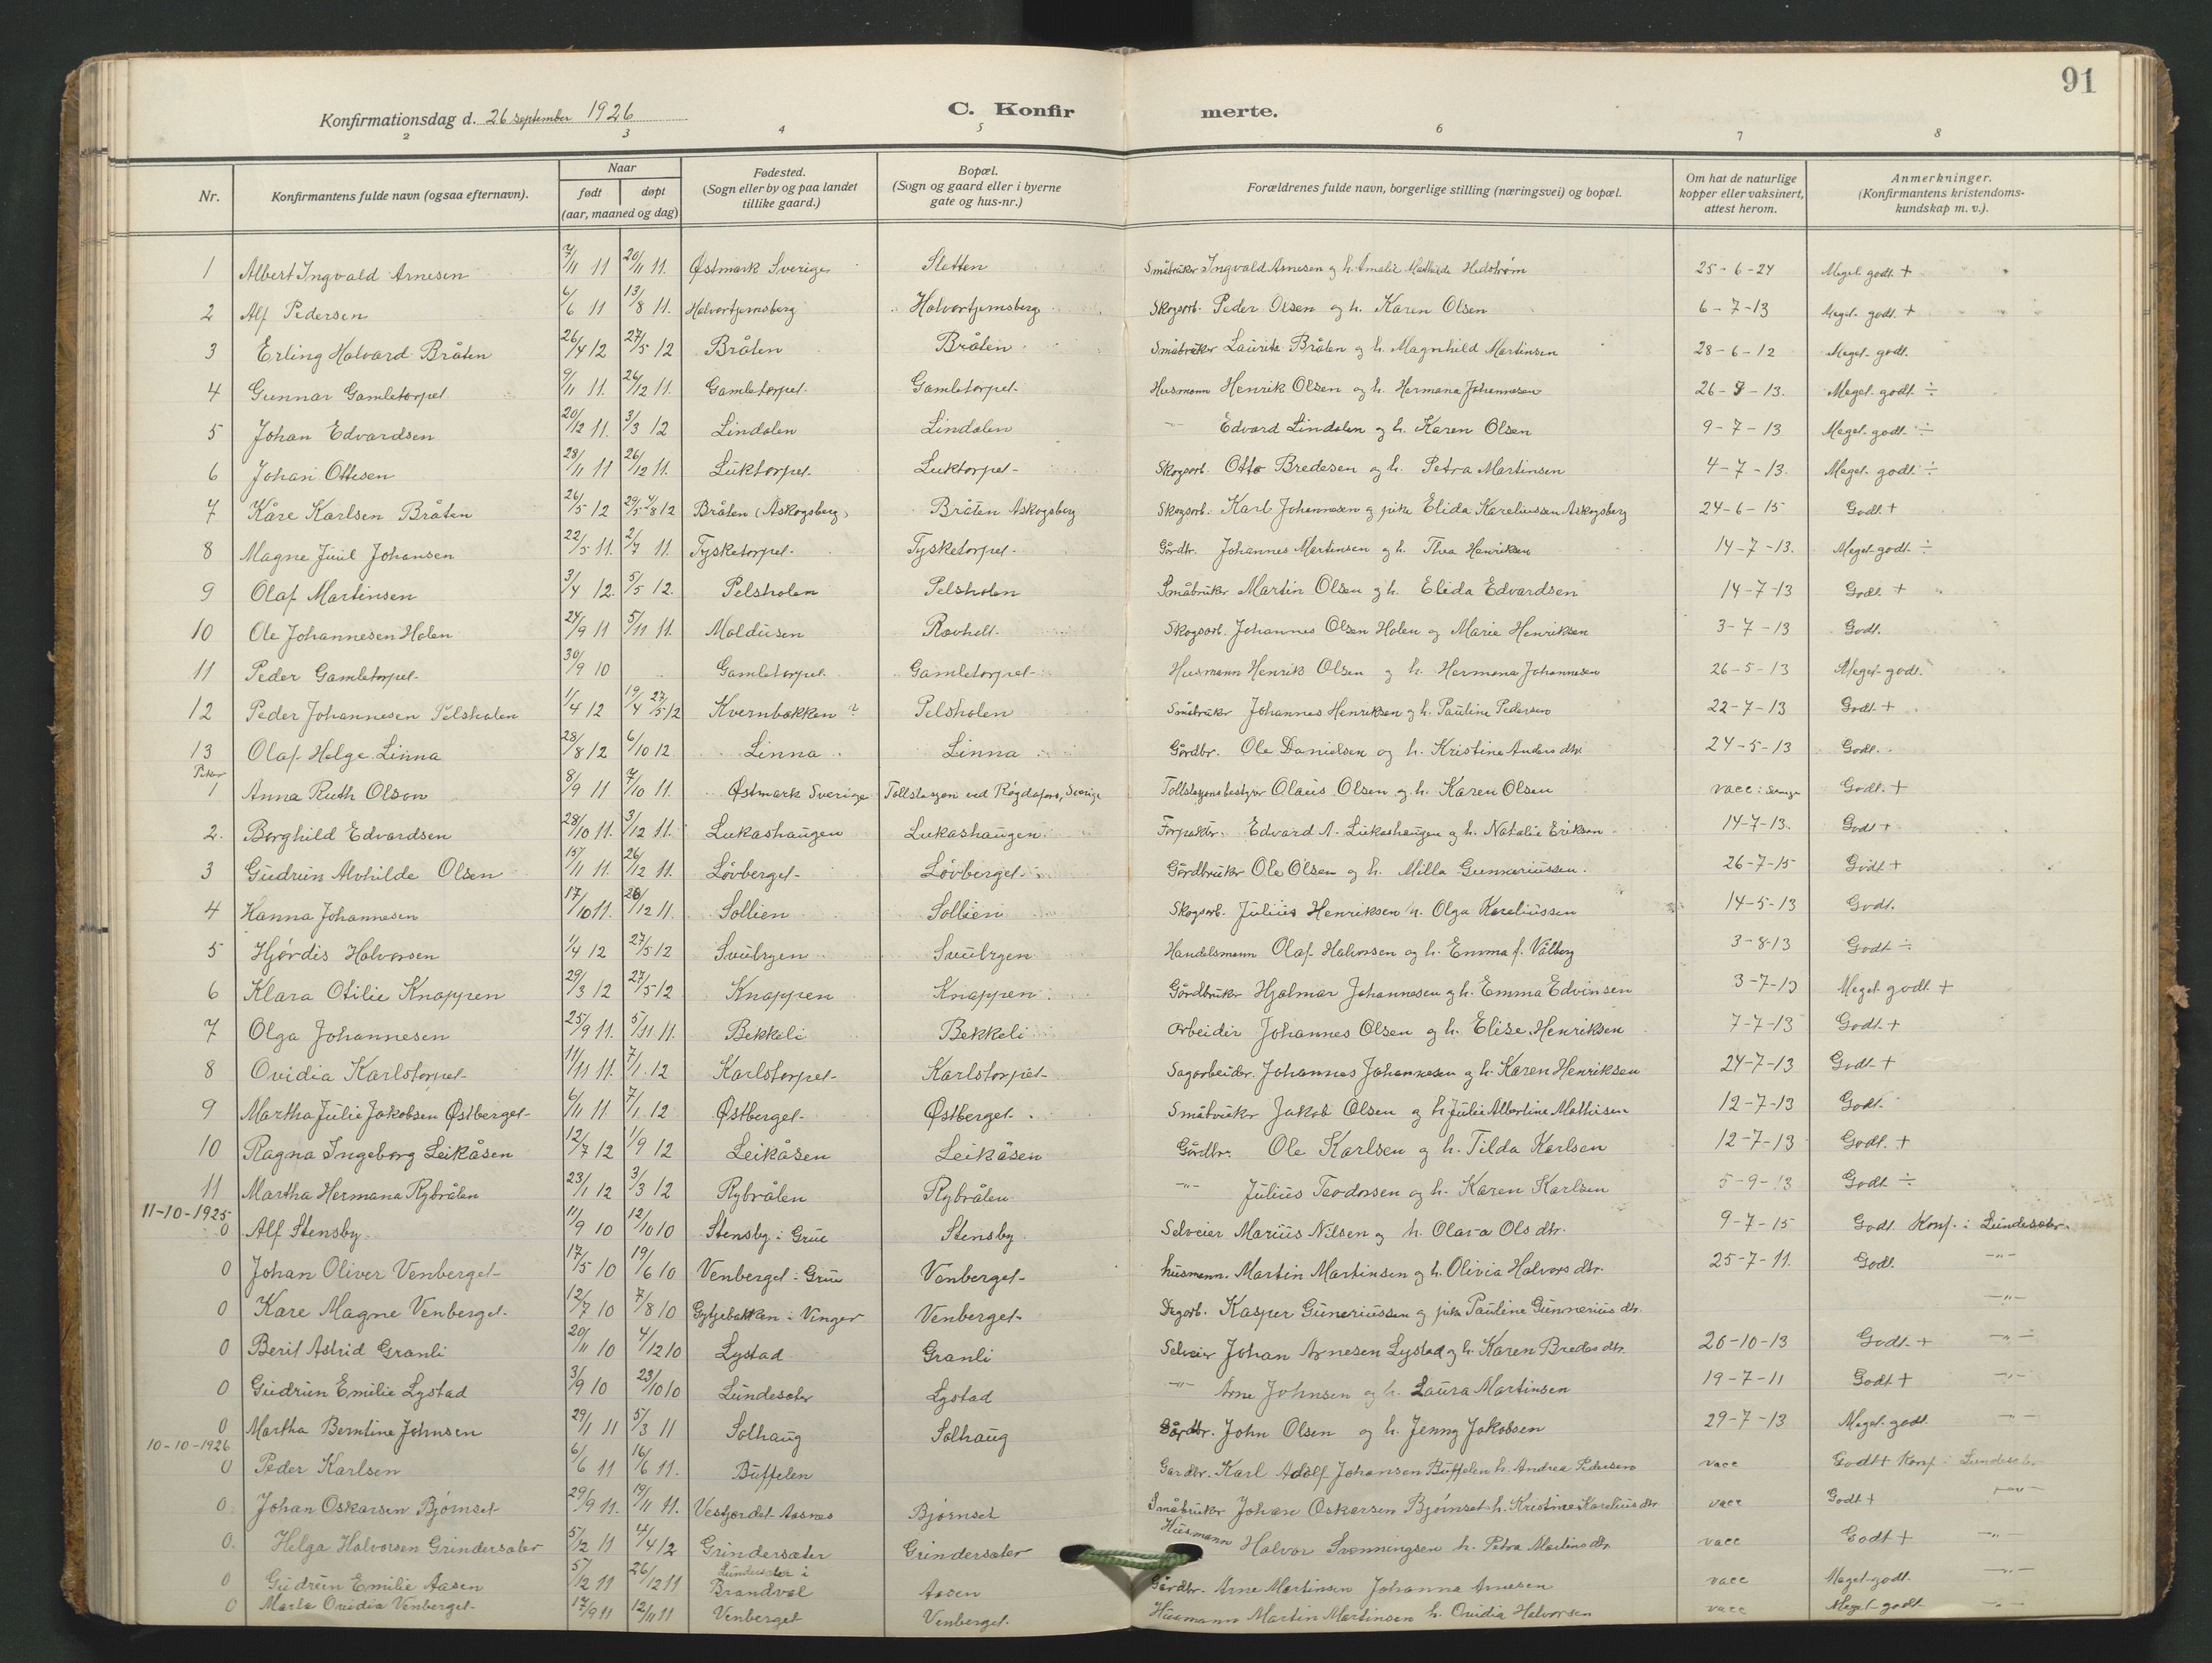 91
Konfirmationsdag d. 26 september 1926
C. Konfirmerte.
2 3 4 5 6 7 8
Nr. | Konfirmantens fulde navn (ogsaa efternavn). | Naar født døpt (aar, maaned og dag) | Fødested. (Sogn eller by og paa landet tillike gaard.) | Bopæl. (Sogn og gaard eller i byerne gate og hus-nr.) | Forældrenes fulde navn, borgerlige stilling (næringsvei) og bopæl. | Om hat de naturlige kopper eller vaksinert, attest herom. | Anmerkninger. (Konfirmantens kristendoms-kundskap m. v.).
1 Albert Ingvald Arnesen 7/11 11 20/11 11. Østmark Sverige Sletten Småbruker Ingvald Arnesen og h. Amalie Mathilde Hedstrøm 25-6-24 Meget godt. +
2 Alf Pedersen 6/6 11 13/8 11. Halvortjernsberg Halvortjernsberg Skogsarb. Peder Olsen og h. Karen Olsen 6-7-13 Meget godt. +
3 Erling Halvard Bråten 26/4 12 27/5 12 Bråten Bråten Småbruker Laurits Bråten og h. Magnhild Martinsen 28-6-12 Meget godt.
4 Gunnar Gamletorpet 9/11 11. 26/12 11. Gamletorpet Gamletorpet Husmann Henrik Olsen og h. Hermana Johannesen 26-8-13. Meget godt ÷
5 Johan Edvardsen 20/12 11. 3/3 12 Lindalen Lindalen -"- Edvard Lindalen og h. Karen Olsen 9-7-13 Meget godt ÷
6 Johan Ottesen 28/11 11 26/12 11. Luktorpet Luktorpet Skogsarb. Otto Bredesen og h. Petra Martinsen 4-7-13. Meget godt ÷
7 Kåre Karlsen Bråten 26/5 12 29/5-4/8 12 Bråten (Askogsberg) Bråten Askogsberg Skogsarb. Karl Johannesen og pike Elida Kareliussen Askogsberg 24-6-15 Godt +
8 Magne Juul Johansen 22/5 11. 2/7 11. Tysketorpet Tysketorpet Gårdbr. Johannes Martinsen og h. Thea Henriksen 14-7-13. Meget godt ÷
9 Olaf Martinsen 3/4 12. 5/5 12. Pelsholen Pelsholen Småbruker Martin Olsen og h. Elida Edvardsen 14-7-13 Godt +
10 Ole Johannesen Holen 24/9 11 5/11 11. Maldusen Ravholt Skogsarb. Johannes Olsen Holen og Marie Henriksen 3-7-13 Godt.
11 Peder Gamletorpet 30/9 10 Gamletorpet Gamletorpet Husmann Henrik Olsen og h. Hermana Johannesen 26-5-13 Meget godt.
12 Peder Johannesen Pelsholen 1/4 12 19/4 27/5 12 Kvernbakken ? Pelsholen Småbruker Johannes Henriksen og h. Pauline Pedersen 22-7-13 Godt +
13 Olaf Helge Linna 28/8 12 6/10 12 Linna Linna Gårdbr. Ole Danielsen og h. Kristine Anders dtr. 24-5-13 Godt.
Piker
1 Anna Ruth Olson 8/9 11 7/10 11. Østmark Sverige Tollstasjon ved Røgdafors, Sverige Tollstasjonsbestyrer Olaus Olsen og h. Karen Olsen vacc: Sverige Godt. +
2. Borghild Edvardsen 28/10 11. 3/12 11. Lukashaugen Lukashaugen Forpakter. Edvard A. Lukashaugen og h. Natalie Eriksen 14-7-13. Godt +
3 Gudrun Alvhilde Olsen 15/11 11. 26/12 11. Løvberget Løvberget Gårdbruker Ole Olsen og h. Milla Gunneriussen. 26-7-15 Godt +
4 Hanna Johannesen 17/10 11. 26/12 11. Sollien Sollien Skogsarb. Julius Henriksen h. Olga Kareliussen 14-5-13 Godt.
5 Hjørdis Halvorsen 1/4 12 27/5 12 Svubryen Svubryen Handelsmann Olaf Halvorsen og h. Emma f. Vålberg 3-8-13 Godt ÷
6 Klara Otilie Knappen 29/3 12 27/5 12 Knappen Knappen Gårdbruker Hjalmar Johannesen og h. Emma Edvinsen 3-7-13 Meget godt +
7 Olga Johannesen 25/9 11. 5/11 11. Bekkeli Bekkeli Arbeider Johannes Olsen og h. Elise Henriksen 7-7-13 Godt +
8 Ovidia Karlstorpet 11/11 11. 7/1 12 Karlstorpet Karlstorpet Sagarbeider. Johannes Johannesen og h. Karen Henriksen 24-7-13 Godt +
9 Martha Julie Jakobsen Østberget 6/11 11 7/1 12 Østberget Østberget Småbruker Jakob Olsen og h. Julie Albertine Mathisen 12-7-13 Godt
10 Ragna Ingeborg Leikåsen 12/7 12 1/9 12 Leikåsen Leikåsen Gårdbr. Ole Karlsen og h. Tilda Karlsen 12-7-13 Godt. +
11 Martha Hermana Rybråten 23/1 12 3/3 12 Rybråten Rybråten -"- Julius Teodorsen og h. Karen Karlsen 5-9-13 Godt ÷
11-10-1925
0 Alf Stensby 11/9 10 12/10 10 Stensby i Grue Stensby Selveier Marius Nilsen og h. Olava Ols dtr. 9-7-15 Godt Konf. i Lundersæter
0 Johan Oliver Venberget 17/5 10 19/6 10 Venberget i Grue Venberget husmann. Martin Martinsen og h. Olivia Halvors dtr. 25-7-11. Godt. -"-
0 Kare Magne Venberget 12/7 10 7/8 10 Gytjebakken i Vinger Venberget Dagarb. Kasper Guneriussen og pike Pauline Gunnerius dtr. -"-
0 Berit Astrid Granli 20/11 10 4/12 10 Lystad Granli Selveier Johan Arnesen Lystad og h. Karen Bredes dtr. 26-10-13 Godt + -"-
0 Gudrun Emilie Lystad 3/9 10 23/10 10 Lundersæter Lystad -"- Arne Johnsen og h. Laura Martinsen 19-7-11 Godt + -"-
0 Martha Berntine Johnsen 29/1 11 5/3 11 Solhaug Solhaug Gårdbr. John Olsen og h. Jenny Jakobsen 29-7-13 Meget godt. -"-
10-10-1926
0 Peder Karlsen 6/6 11 16/6 11. Buffelen Gardbr. Karl Adolf Johansen Buffelen h. Andrea Pedersen vacc Godt + Konf. i Lundersæter
0 Johan Oskarsen Bjørnset 29/9 11. 19/11 11. Vestjordet Aasnes Bjørnset Småbruker Johan Oskarsen Bjørnset h. Kristine Karelius dtr vacc Godt + -"-
0. Helga Halvorsen Grindersæter 5/12 11 4/4 12 Grindersæter Grindersæter Husmann Halvor Svenningsen h. Petra Martins dtr vacc Godt + -"-
0 Gudrun Emilie Aasen 5/12 11 26/12 11 Lundersæter i Brandval Aasen Gårdbr. Arne Martinsen Johanna Arnesen vacc Meget godt. -"-
0 Marta Ovidia Venberget 17/9 11 12/11 11 Venberget Venberget Husmann Martin Martinsen h. Ovidia Halvorsen vacc Meget godt -"-